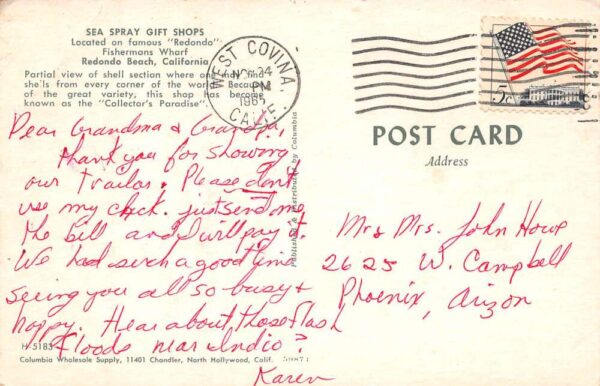 SEA SPRAY GIFT SHOPS
Located on famous "Redondo"
Fishermans Wharf
Redondo Beach, California
Partial view of shell section where one may find
she'ls from every corner of the world. Because
of the great variety, this shop has become
known as the "Collector's Paradise".
WEST COVINA,
PM
CALIF.
5c
Dear Grandma & Grandpa,
Thank you for showing
our trailor. Please don't
use my check. just send me
the bill and I will pay it.
We had such a good time
seeing you all so busy &
happy. Hear about those flash
floods near Indio?
Karen
Published & Distributed by Columbia
POST CARD
Address
Mr & Mrs. John Howe
2625 W. Campbell
Phoenix, Arizon
H-5183
Columbia Wholesale Supply, 11401 Chandler, North Hollywood, Calif.